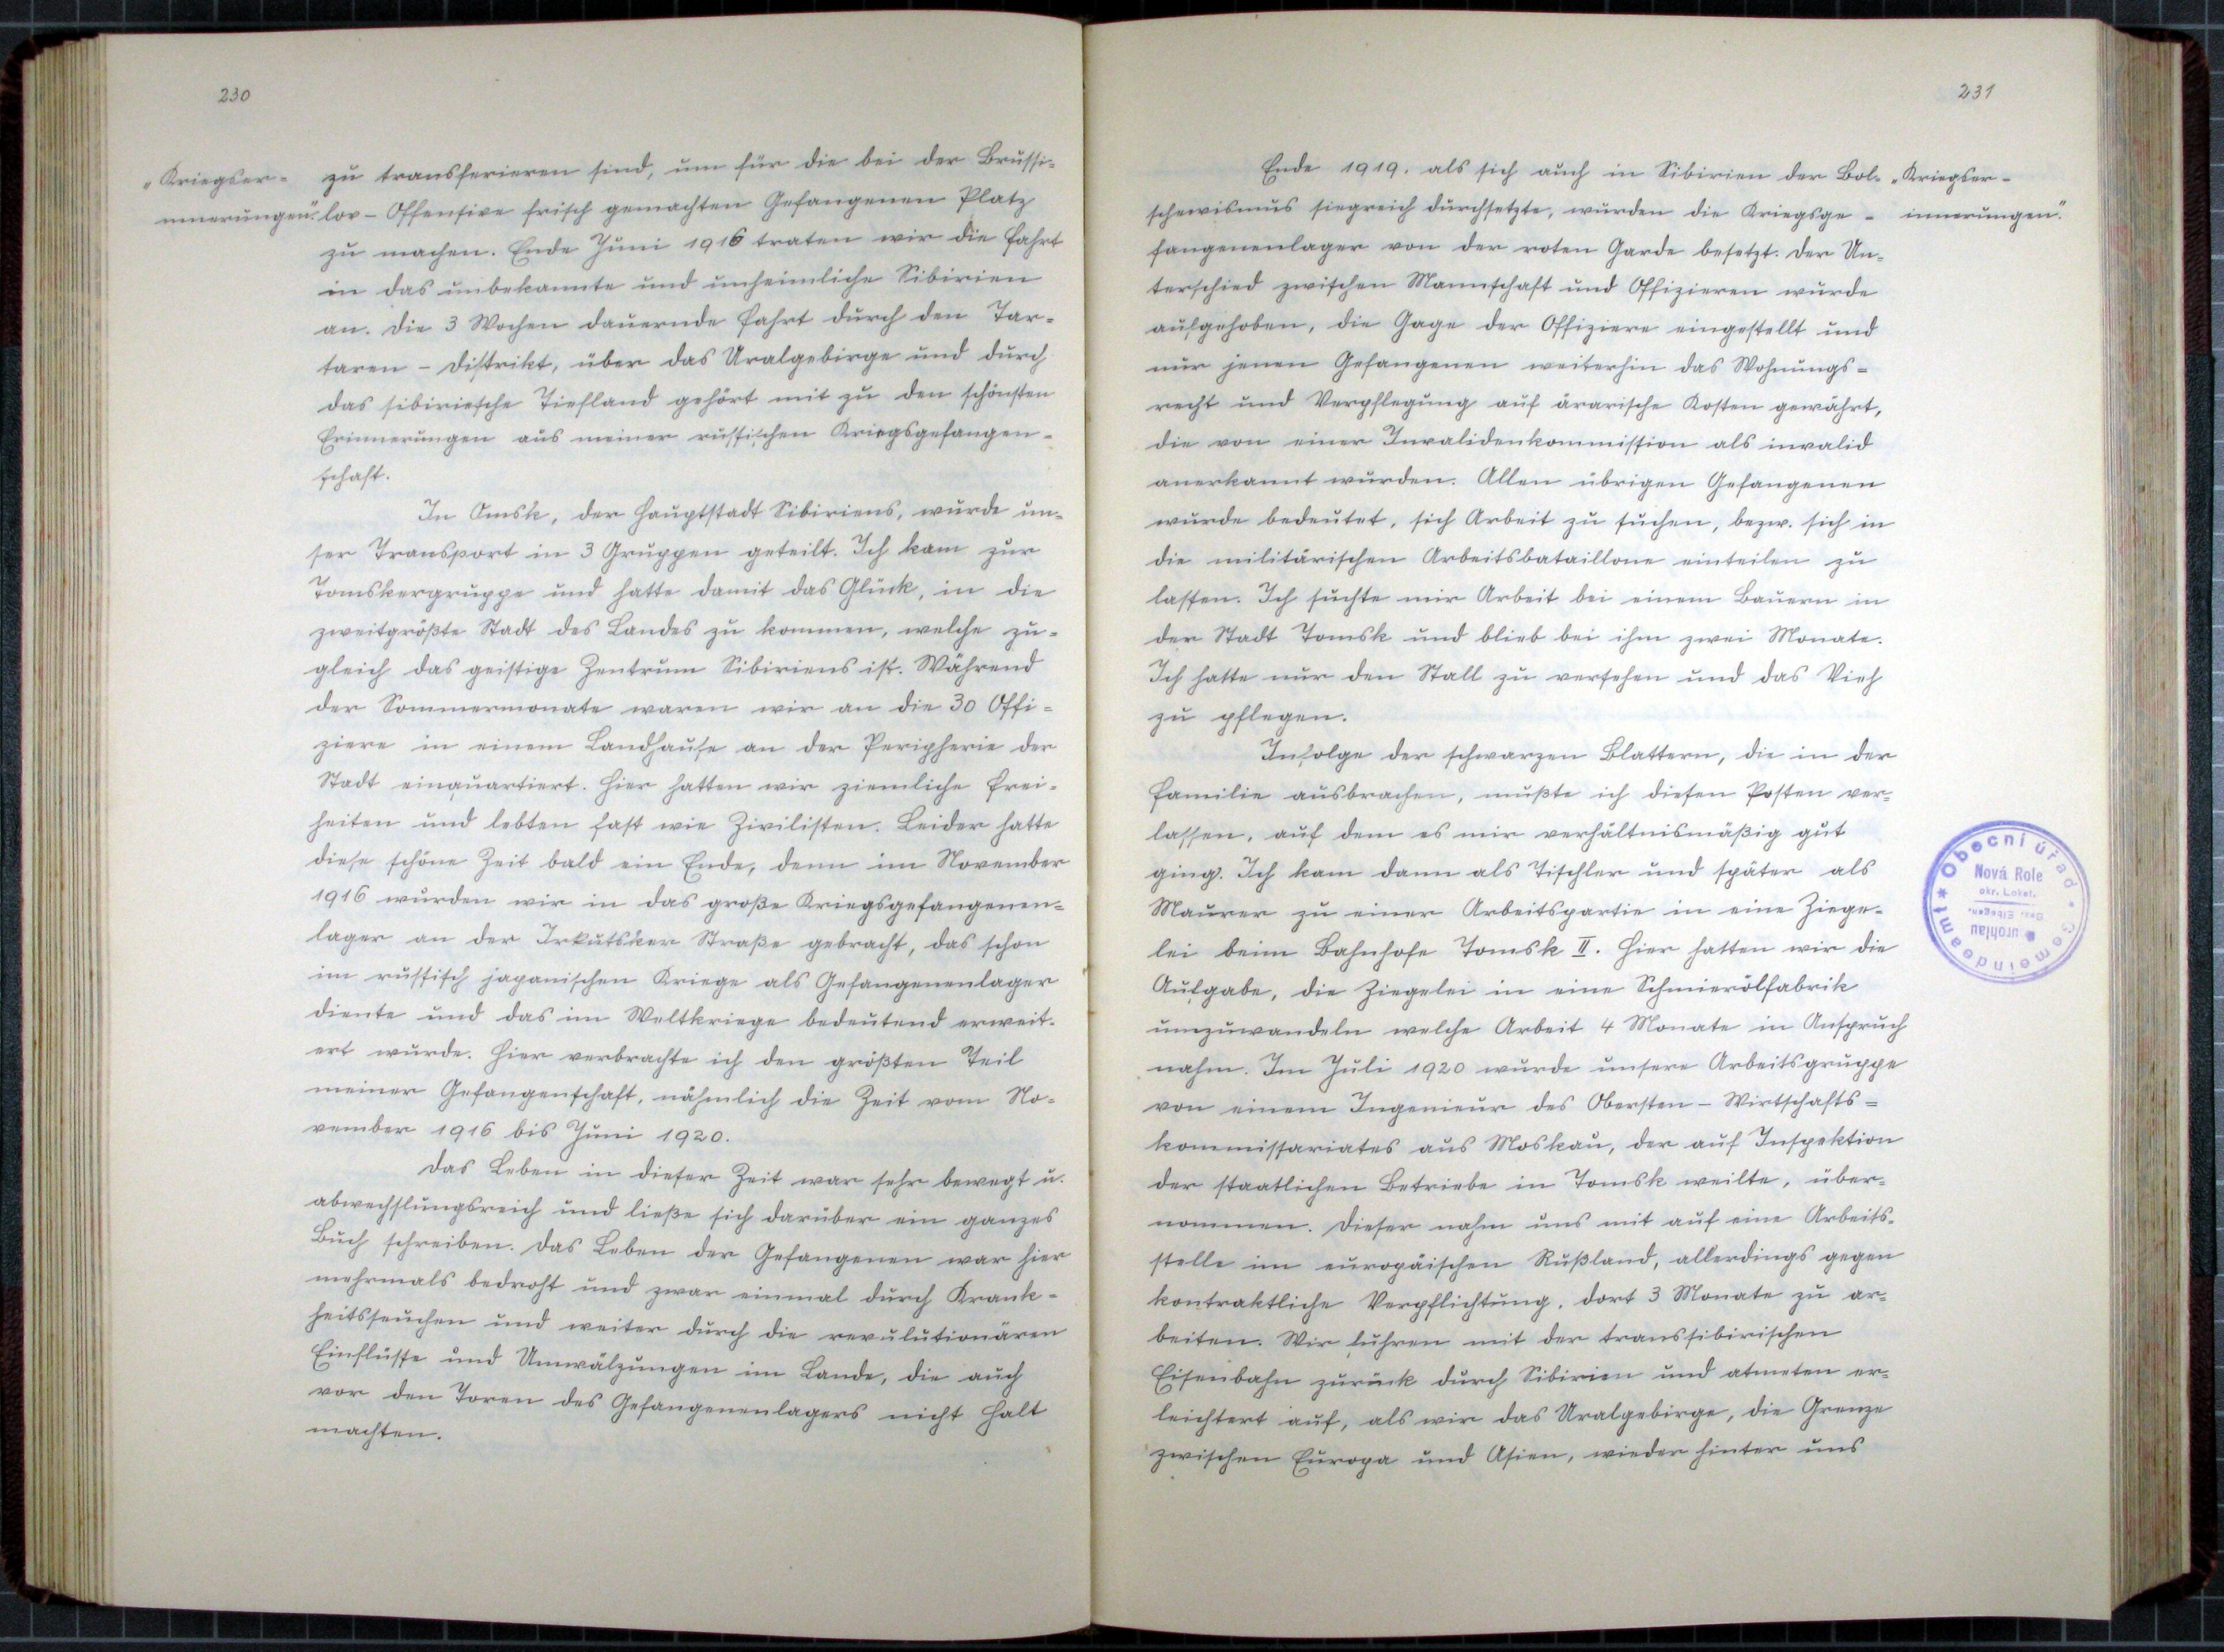 230
„Kriegser-
innerungen".
zu transferieren sind, um für die bei der Brussi-
lov - Offensive frisch gemachten Gefangenen Platz
zu machen. Ende Juni 1916 traten wir die Fahrt
in das unbekannte und unheimliche Sibirien
an. Die 3 Wochen dauernde Fahrt durch den Tar-
taren - Distrikt, über das Uralgebirge und durch
das sibiriesche Tiefland gehört mit zu den schönsten
Erinnerungen aus meiner russischen Kriegsgefangen-
schaft.
In Omsk, der Hauptstadt Sibiriens, wurde un-
ser Transport in 3 Gruppen geteilt. Ich kam zur
Tomskergruppe und hatte damit das Glück, in die
zweitgrößte Stadt des Landes zu kommen, welche zu-
gleich das geistige Zentrum Sibiriens ist. Während
der Sommermonate waren wir an die 30 Offi-
ziere in einem Landhause an der Peripherie der
Stadt einquartiert. Hier hatten wir ziemliche Frei-
heiten und lebten fast wie Zivilisten. Leider hatte
diese schöne Zeit bald ein Ende, denn im November
1916 wurden wir in das große Kriegsgefangenen-
lager an der Irkutsker Straße gebracht, das schon
im russisch japanischen Kriege als Gefangenenlager
diente und das im Weltkriege bedeutend erweit-
ert wurde. Hier verbrachte ich den größten Teil
meiner Gefangenschaft, nähmlich die Zeit vom No-
vember 1916 bis Juni 1920.
Das Leben in dieser Zeit war sehr bewegt u.
abwechslungsreich und ließe sich darüber ein ganzes
Buch schreiben. Das Leben der Gefangenen war hier
mehrmals bedroht und zwar einmal durch Krank-
heitsseuchen und weiter durch die revulutionären
Einflüsse und Umwälzungen im Lande, die auch
vor den Toren des Gefangenenlagers nicht Halt
machten.
231
„Kriegser-
innerungen".
Ende 1919. als sich auch in Sibirien der Bol-
schewismus siegreich durchsetzte, wurden die Kriegsge-
fangenenlager von der roten Garde besetzt. Der Un-
terschied zwischen Mannschaft und Offizieren wurde
aufgehoben, die Gage der Offiziere eingestellt und
nur jenen Gefangenen weiterhin das Wohnungs-
recht und Verpflegung auf ärarische Kosten gewährt,
die von einer Invalidenkommission als invalid
anerkannt wurden. Allen übrigen Gefangenen
wurde bedeutet, sich Arbeit zu suchen, bezw. sich in
die militärischen Arbeitsbataillone einteilen zu
lassen. Ich suchte mir Arbeit bei einem Bauern in
der Stadt Tomsk und blieb bei ihm zwei Monate.
Ich hatte nur den Stall zu versehen und das Vieh
zu pflegen.
Infolge der schwarzen Blattern, die in der
Familie ausbrachen, mußte ich diesen Posten ver-
lassen, auf dem es mir verhältnismäßig gut
ging. Ich kam dann als Tischler und später als
Maurer zu einer Arbeitspartie in eine Ziege-
lei beim Bahnhofe Tomsk II. Hier hatten wir die
Aufgabe, die Ziegelei in eine Schmierölfabrik
umzuwandeln welche Arbeit 4 Monate in Anspruch
nahm. Im Juli 1920 wurde unsere Arbeitsgruppe
von einem Ingenieur des Obersten - Wirtschafts-
kommissariates aus Moskau, der auf Inspektion
der staatlichen Betriebe in Tomsk weilte, über-
nommen. Dieser nahm uns mit auf eine Arbeits-
stelle im europäischen Rußland, allerdings gegen
kontraktliche Verpflichtung, dort 3 Monate zu ar-
beiten. Wir fuhren mit der transsibirischen
Eisenbahn zurück durch Sibirien und atmeten er-
leichtert auf, als wir das Uralgebirge, die Grenze
zwischen Europa und Asien, wieder hinter uns
Obecní úřad * Gemeindeamt *
Nová Role
okr. Loket.
Bez. Elbogen.
Neurohlau